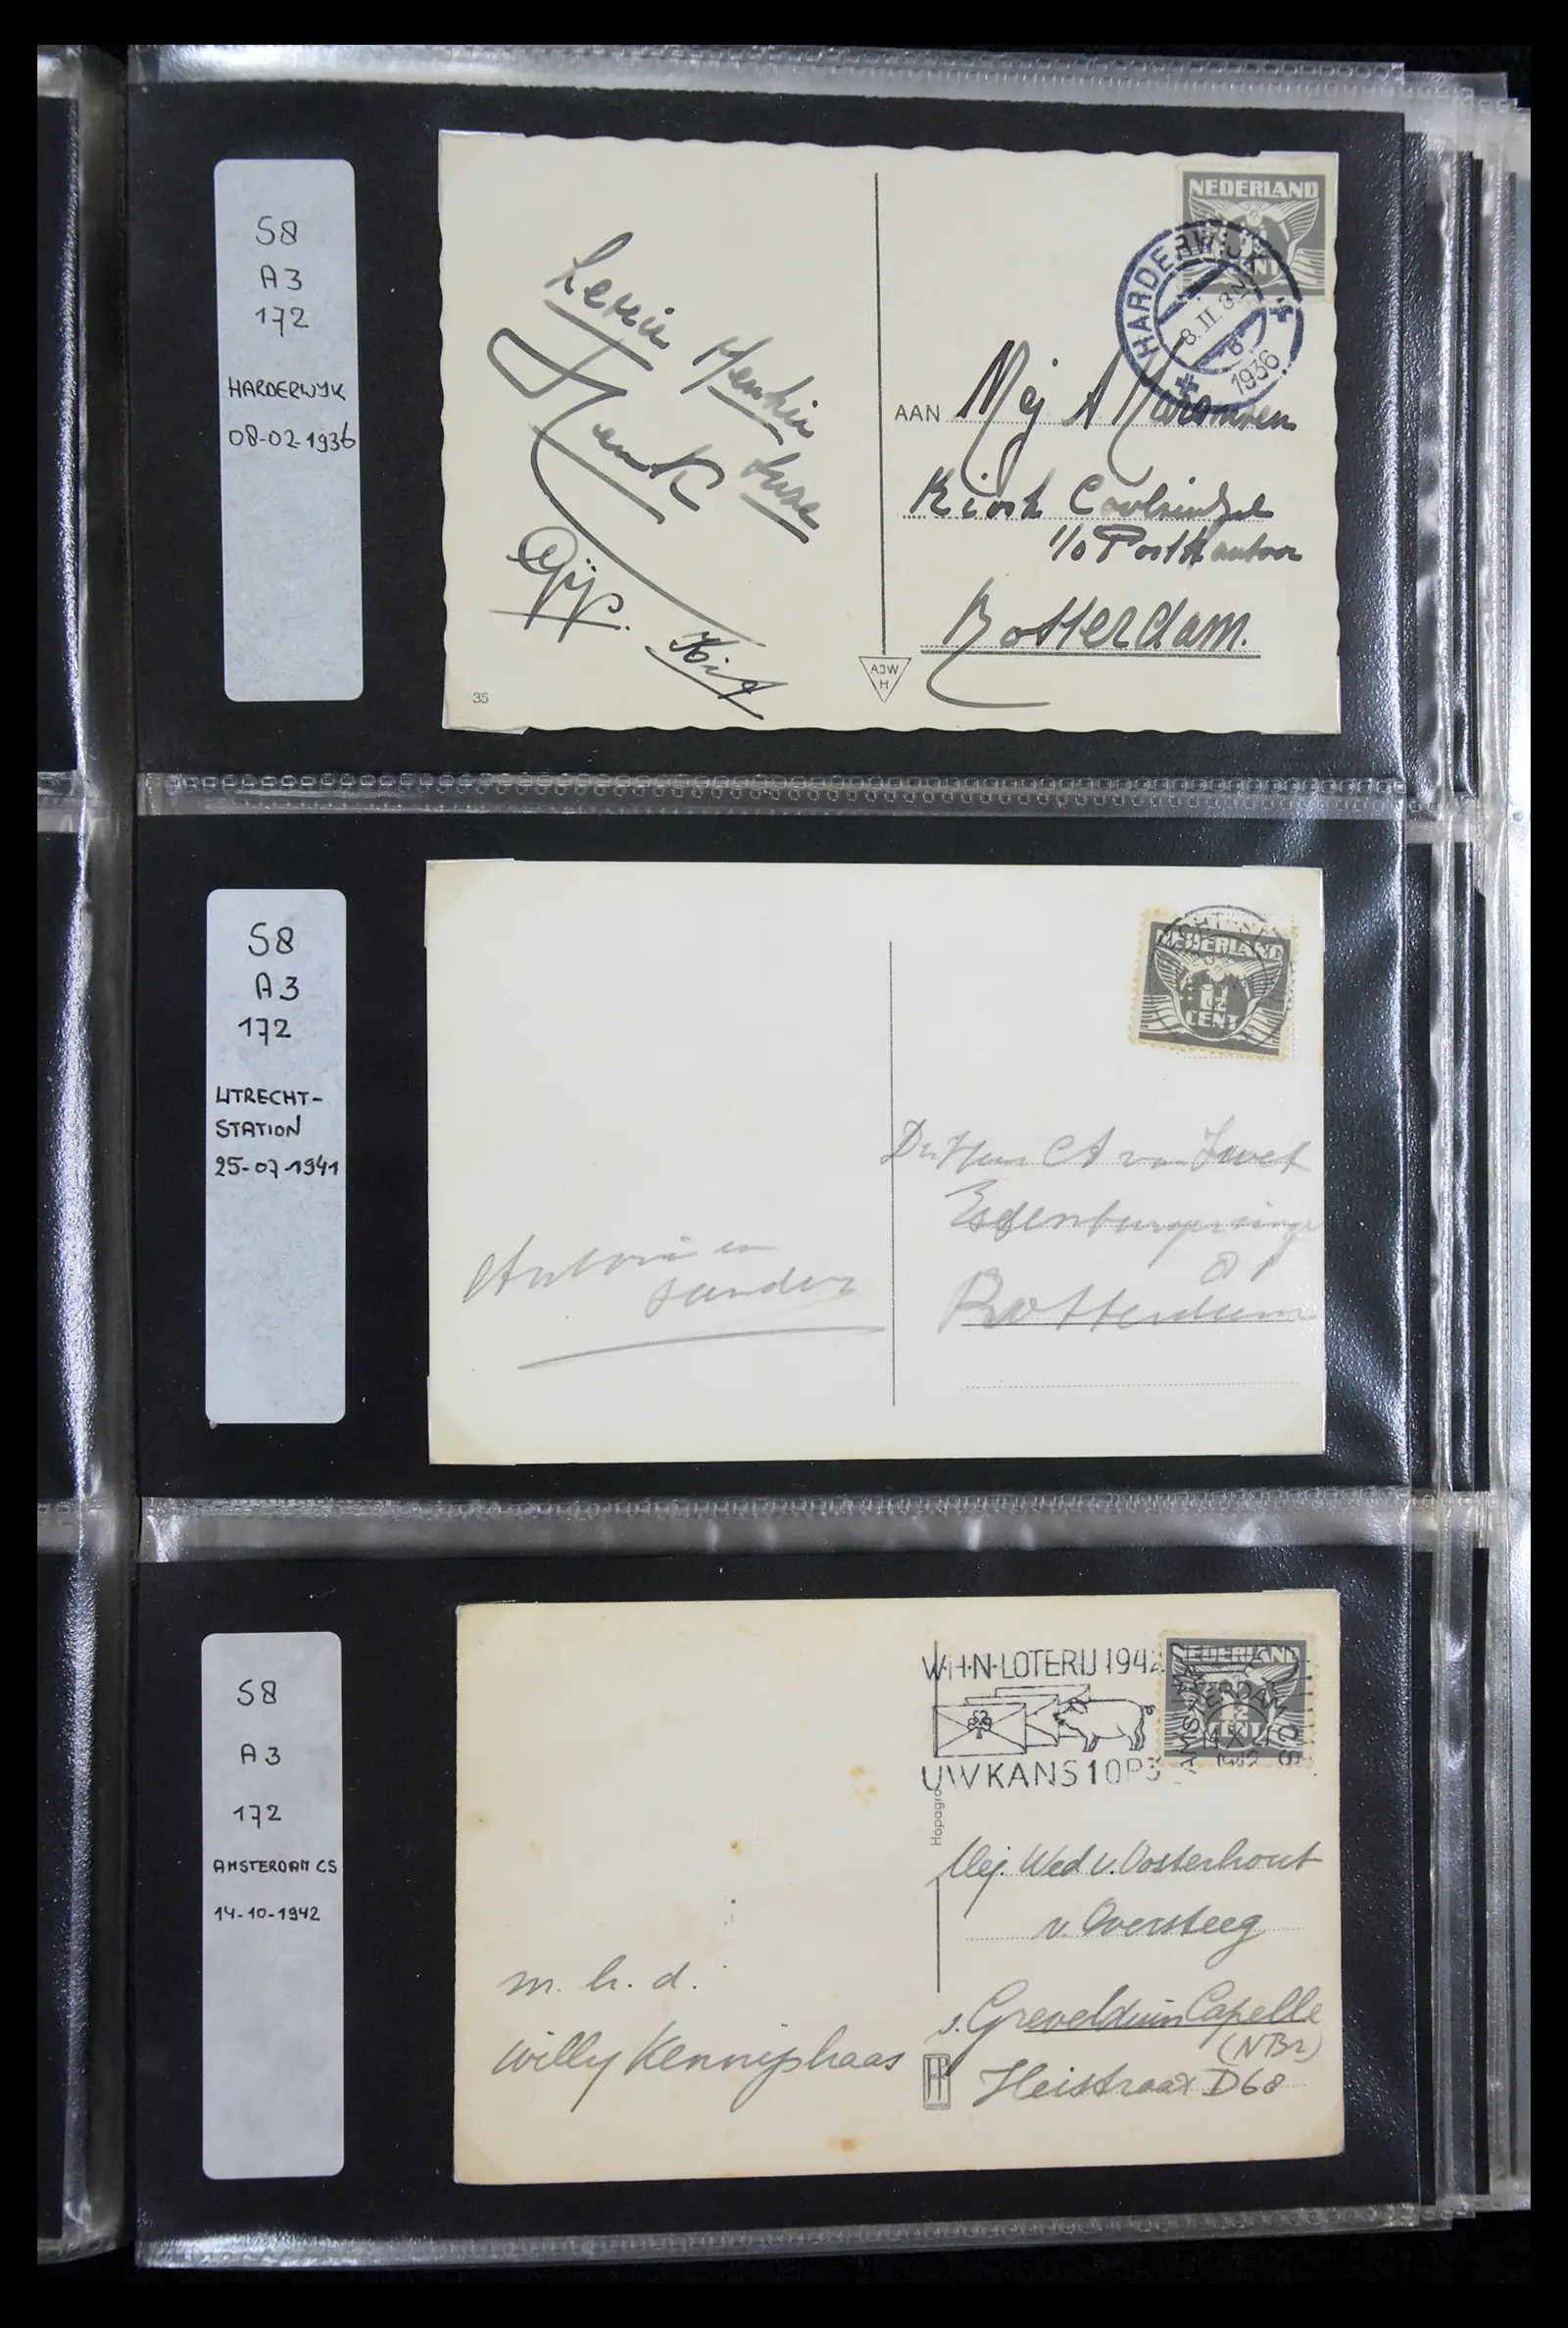 S8
A3
172
HARDERWIJK
08-02-1936
NEDERLAND
CENT
HARDERWIJK
8.II.3
1936
Henk
Gijp.
AAN Mej A
Kiosk Coolsingel
t/o Postkantoor
Rotterdam.
AJW
H
35
S8
A3
172
UTRECHT-
STATION
25-07-1941
NEDERLAND
1½
CENT
en
Sandor
A van
Essenburgsingel
81
Rotterdam
S8
A3
172
AMSTERDAM CS
14-10-1942
W·H·N·LOTERIJ 1942
UW KANS 1 OP 3
NEDERLAND
CENT
AMSTERDAM CS
14 X
1942
Hopagro
Mej. Wed v. Oosterhout
v. Oversteeg
s. Grevelduin Capelle
(NBr)
Heistraat D68
m. h. d.
Willy Kennijshaas